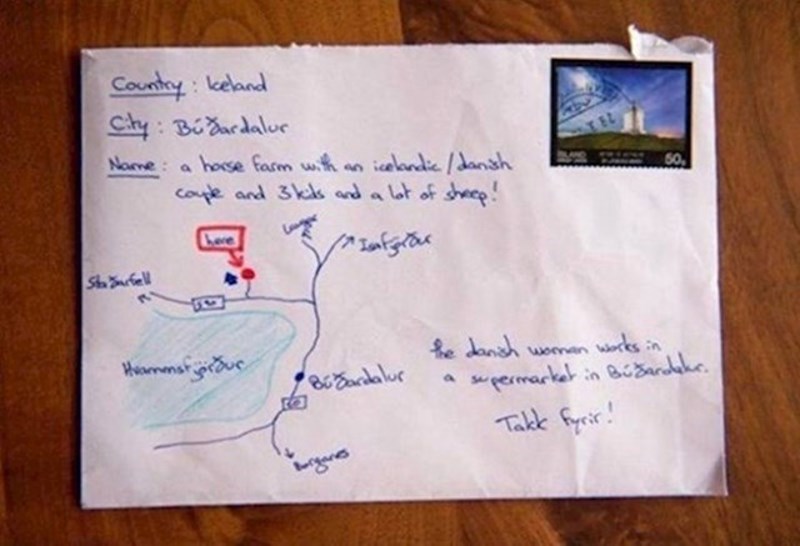 Country : Iceland
City : Búðardalur
Name : a horse farm with an icelandic/danish
couple and 3 kids and a lot of sheep!
here
Isafjörður
Staðarfell
590
Hvammsfjörður
Búðardalur
60
Borganes
the danish woman works in
a supermarket in Búðardalur.
Takk fyrir!
ÍSLAND
50g